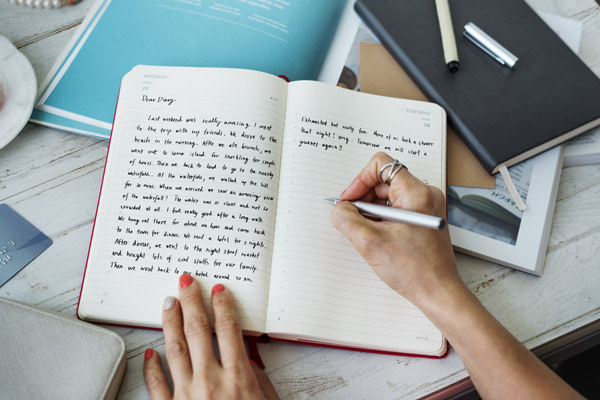 Dear Diary,
Last weekend was really amazing. I went
to the trip with my friends. We drove to the
beach in the morning. After we ate brunch, we
went out to some island for snorkling for couple
of hours. Then we back to land to go to the nearby
waterfalls. At the waterfalls, we walked up the hill
for 30 mins. When we arrived we saw an amazing view
of the waterfall! The water was so clear and not so
crowded at all. I felt really good after a long walk
We hung out there for about an hour and came back
to the town for dinner. We rent a hotel for 2 nights.
After dinner, we went to the night street market
and bought lots of cool stuffs for our family.
Then we went back to our hotel around 10 pm.
Exhausted but really fun. None of us took a shower
that night! Tomorrow we will start a
journey again!